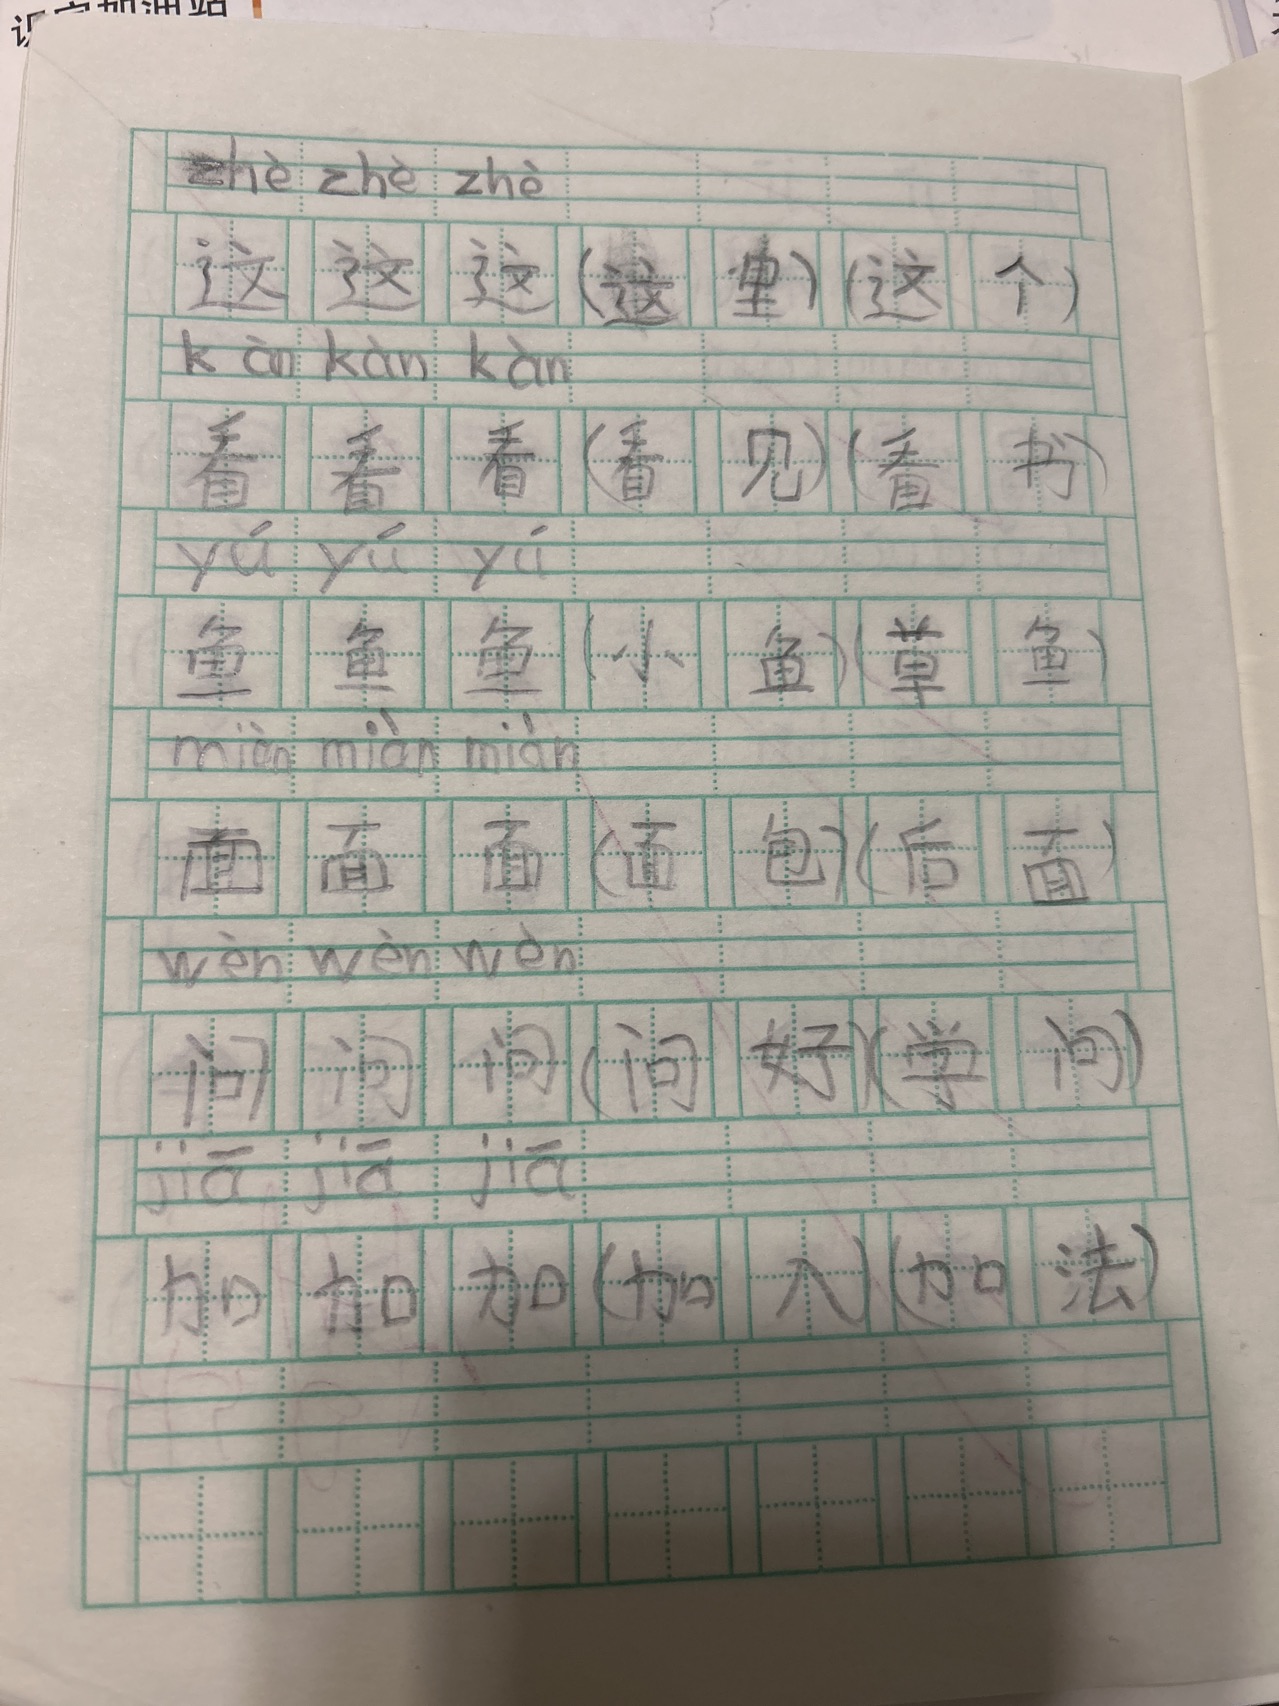 识字加油站
zhè zhè zhè
这 这 这 (这 里) (这 个)
kàn kàn kàn
看 看 看 (看 见) (看 书)
yú yú yú
鱼 鱼 鱼 (小 鱼) (草 鱼)
miàn miàn miàn
面 面 面 (面 包) (后 面)
wèn wèn wèn
问 问 问 (问 好) (学 问)
jiā jiā jiā
加 加 加 (加 入) (加 法)